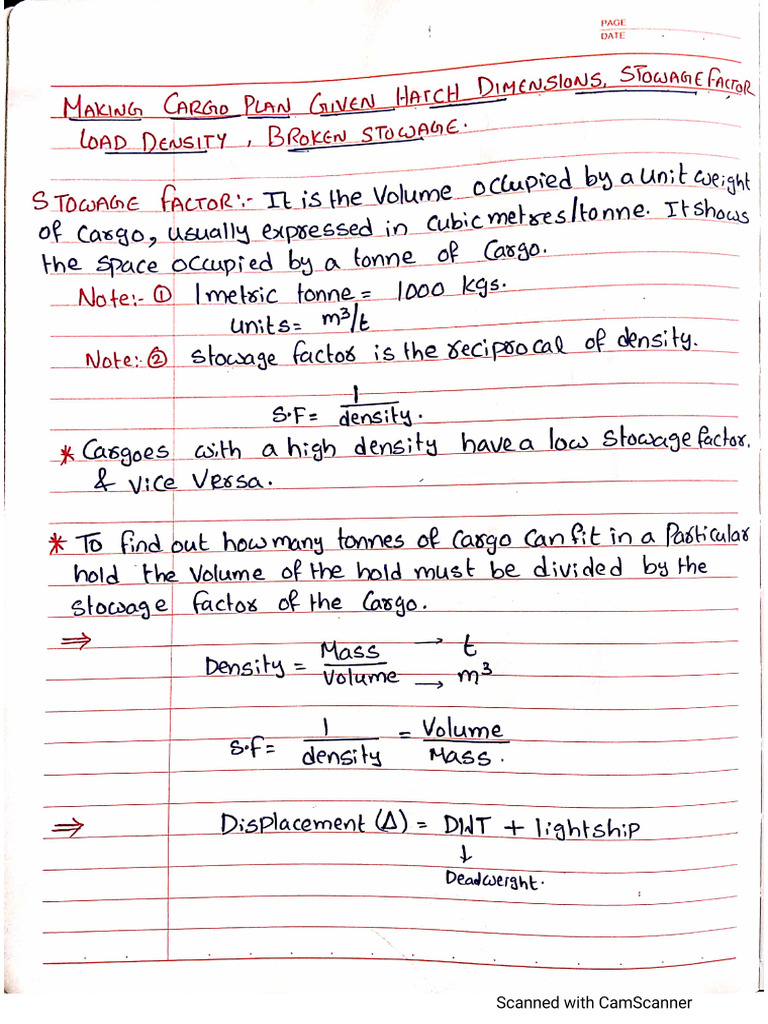 PAGE
DATE
MAKING CARGO PLAN GIVEN HATCH DIMENSIONS, STOWAGE FACTOR
LOAD DENSITY, BROKEN STOWAGE.
STOWAGE FACTOR:- It is the Volume occupied by a unit weight
of Cargo, usually expressed in cubic metres/tonne. It shows
the space occupied by a tonne of Cargo.
Note:- ① 1 metric tonne = 1000 kgs.
units = m³/t
Note:- ② Stowage factor is the reciprocal of density.
S.F = 1/density.
* Cargoes with a high density have a low stowage factor.
& vice versa.
* To find out how many tonnes of Cargo Can fit in a Particular
hold the volume of the hold must be divided by the
stowage factor of the Cargo.
⇒ Density = Mass/Volume → t → m³
S.F = 1/density = Volume/Mass.
⇒ Displacement (Δ) = DWT + lightship
↓
Deadweight.
Scanned with CamScanner